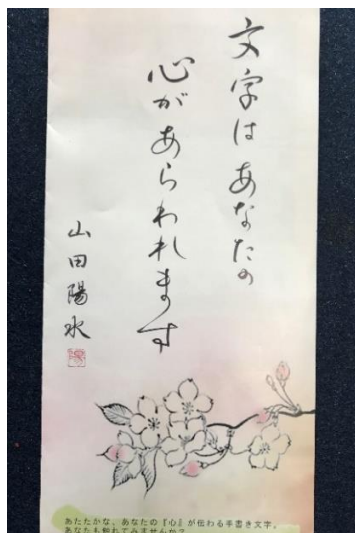 文字はあなたの
心があらわれます
山田陽水
陽
あたたかな、あなたの『心』が伝わる手書き文字。
あなたも触れてみませんか？